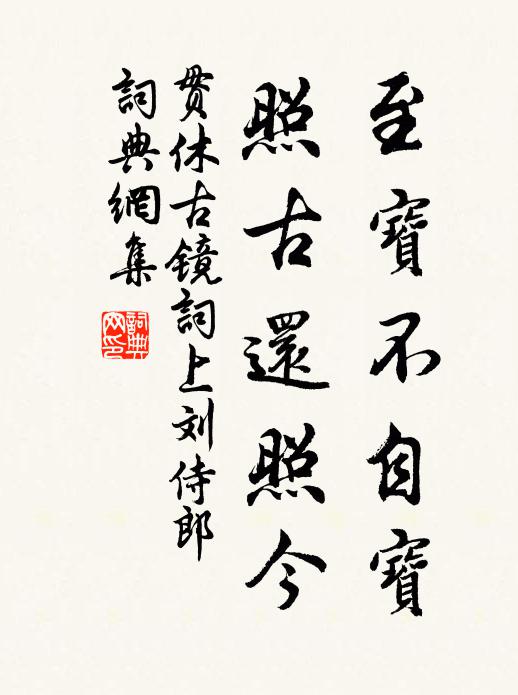 至寶不自寶
照古還照今
貫休古镜詞上刘侍郎
詞典網集
詞典网印